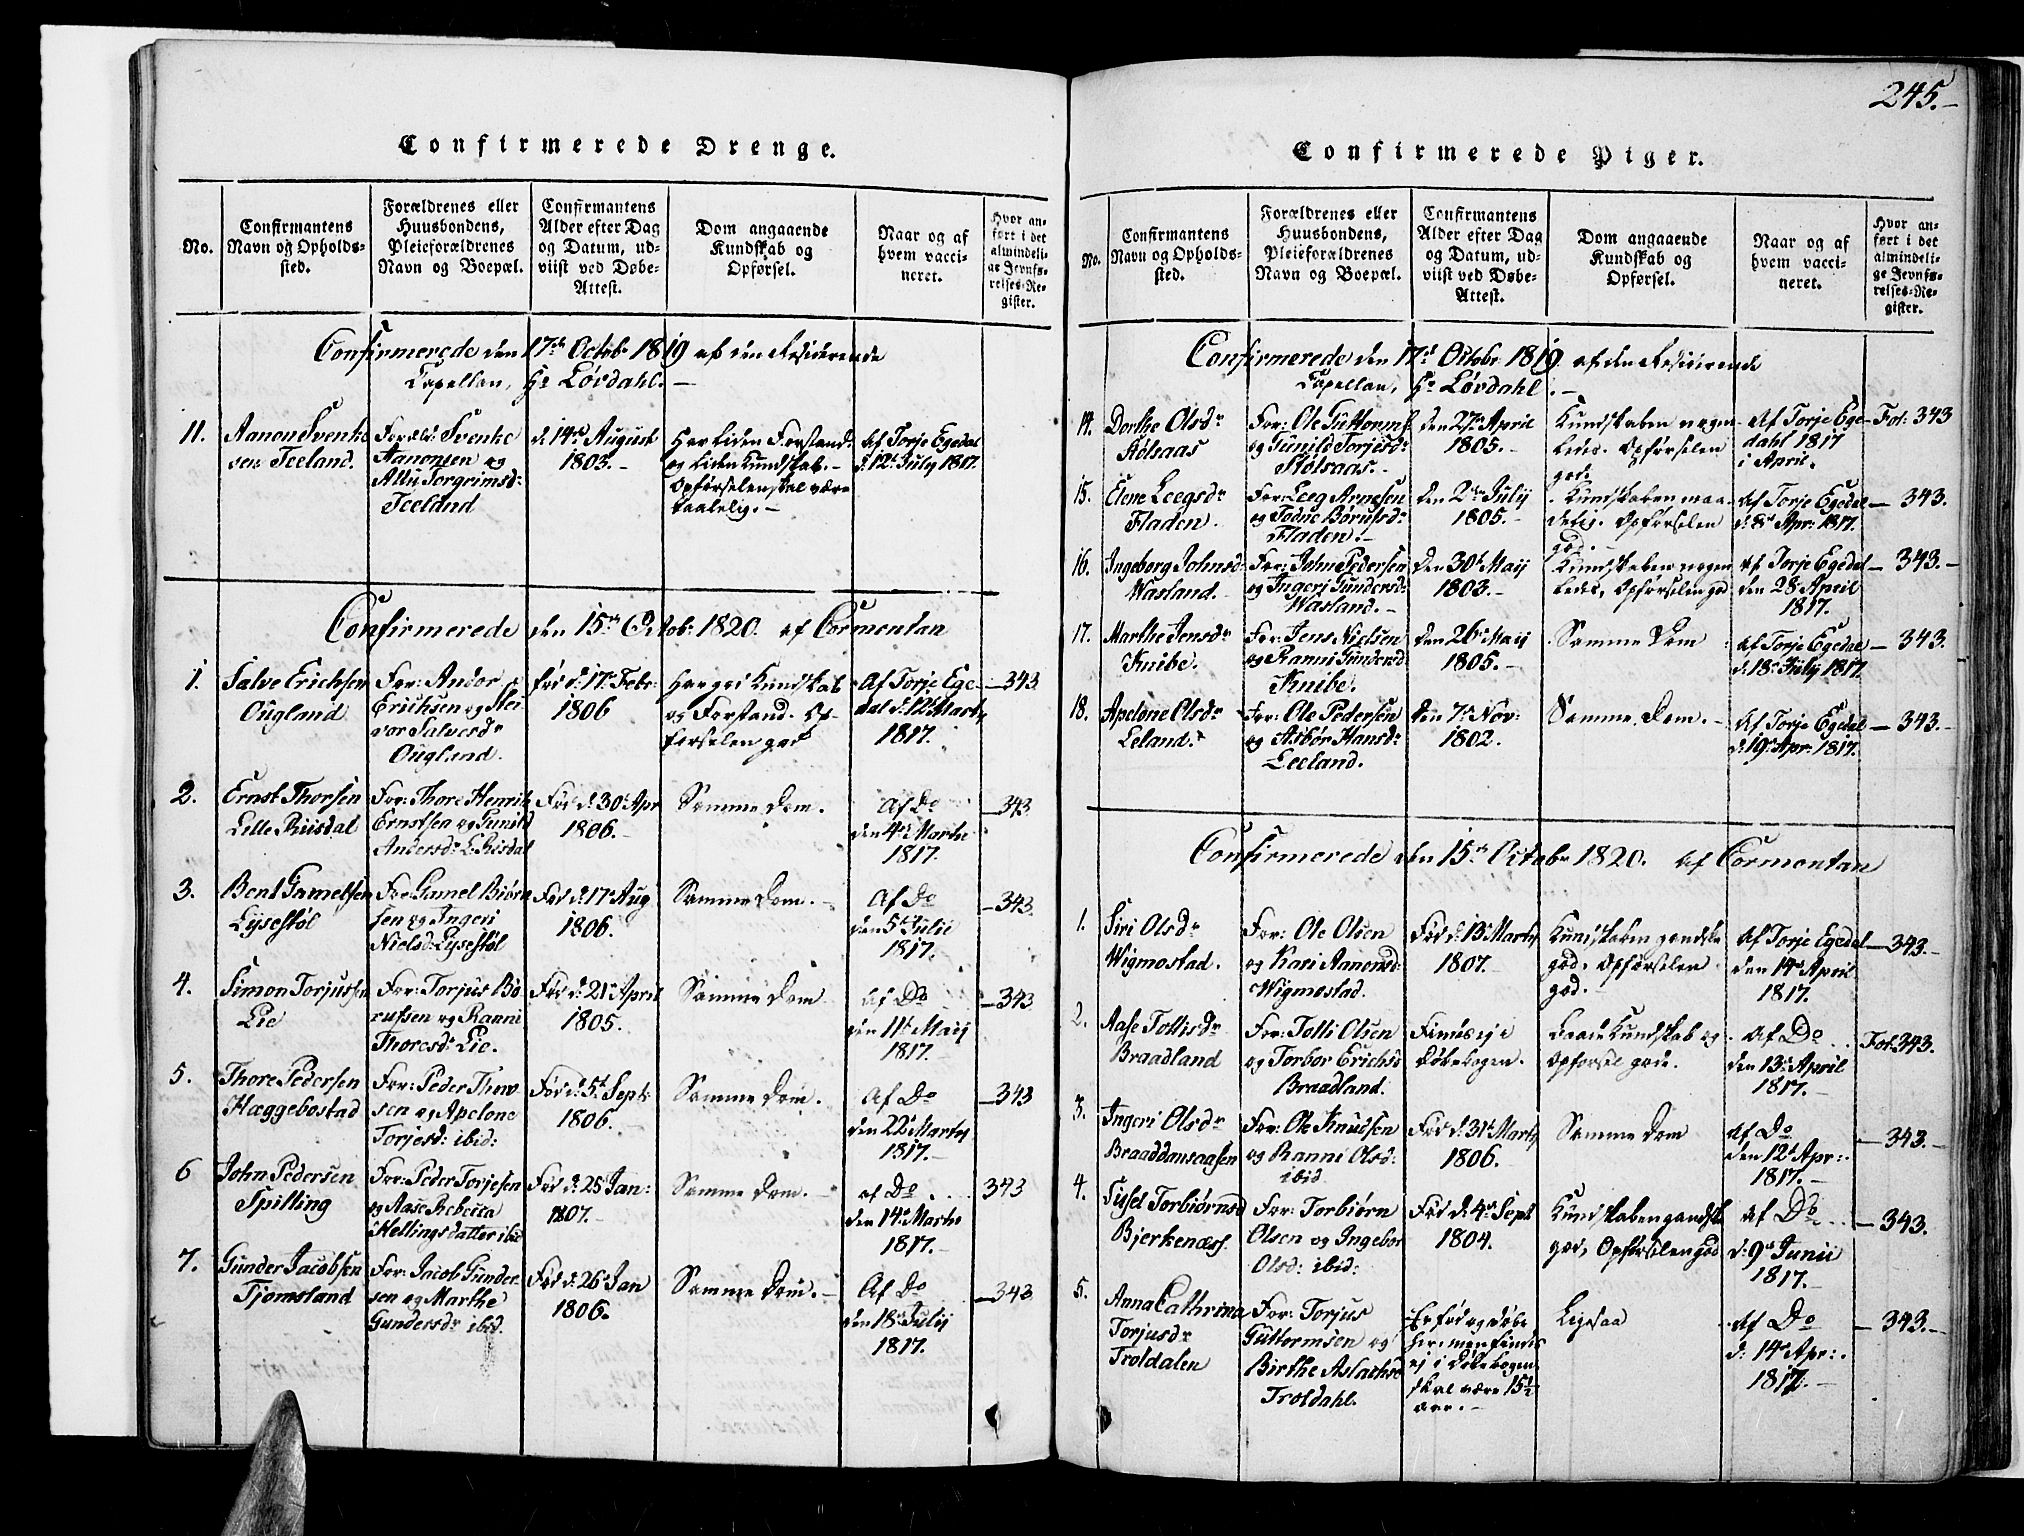 Confirmerede Drenge.
No.
Confirmantens
Navn og Opholds-
sted.
Forældrenes eller
Huusbondens,
Pleieforældrenes
Navn og Boepæl.
Confirmantens
Alder efter Dag
og Datum, ud-
viist ved Døbe-
Attest.
Dom angaaende
Kundskab og
Opførsel.
Naar og af
hvem vacci-
neret.
Hvor an-
ført i det
almindeli-
ge Jevnfø-
relses-Re-
gister.
Confirmerede den 17de Octob: 1819 af den Residerende
Capellan, Hr Løvdahl. —
11.
Aanon Svenke
sen Teeland.
Foræld: Svenke
Aanonsen og
Torgrimsd:
Teeland
d. 14de August
1803. —
Har liden Forstand:
og liden Kundskab. —
Opførselen skal være
taalelig. —
Af Torje Egedal
d: 12t July 1817.
Confirmerede den 15de Octob: 1820. af Cormontan
1.
Salve Erichsen
Ougland
For: Andor
Erichsen og
Salvesdr
Ougland.
fød d: 17de Febr:
1806
Har god Kundskab
og Forstand. Op-
førselen god
Af Torje Ege-
dal d: 12t Marty
1817.
— 343.
2.
Ernst Thorsen
Lille Riisdal
For: Thore Henrik
Ernstsen og Gunild
Andersdr L: Risdal
Fød d: 30t Apr
1806. —
Samme Dom.
Af Do
den 4de Marthi
1817. —
— 343
3.
Bent Gamelsen
Lysestøl
For: Gamel Biørn
sen og Ingeri
Nielsd: Lysestøl
Fød d: 17de Aug
1806.
Samme Dom. —
Af Do
den 5t Julii
1817. —
— 343.
4.
Simon Torjussen
Lie
For: Torjus Bø-
rufsen og Ranni
Thoresd: Lie.
Fød d: 21de April
1805.
Samme Dom
Af Do
den 11t Maij
1817. —
— 343
5.
Thore Pedersen
Hæggebostad
For: Peder Thor
sen og Apelone
Torjesd: ibid:
Fød d: 5t Sept:
1806. —
Samme Dom.
Af Do
den 22de Marty
1817. —
— 343
6
John Pedersen
Spilling
For: Peder Torjesen
og Aase Rebecca
Hellingsdatter ibid
Fød d: 25de Jan:
1807. —
Samme Dom. —
af Do
den 14de Marthi
1817. —
343
7.
Gunder Jacobsen
Tjomsland
For: Jacob Gunder-
sen og Marthe
Gundersdr ibid.
Fød d: 26de Jan
1806.
Samme Dom. —
Af Do
den 18de Julij
1817.
— 343
245. —
Confirmerede Piger.
No.
Confirmantens
Navn og Opholds-
sted.
Forældrenes eller
Huusbondens,
Pleieforældrenes
Navn og Boepæl.
Confirmantens
Alder efter Dag
og Datum, ud-
viist ved Døbe-
Attest.
Dom angaaende
Kundskab og
Opførsel.
Naar og af
hvem vacci-
neret.
Hvor an-
ført i det
almindeli-
ge Jevnfø-
relses-Re-
gister.
Confirmerede den 17de Octobr 1819 af den Residerende
Capellan, Hr Løvdahl. —
14.
Dorthe Olsdr
Stølsaas
For: Ole Guttormsen
og Gunild Torjesdr
Stølsaas. —
den 27de April
1805. —
Kundskaben nogen-
ledes. Opførselen
god.
Af Torje Ege-
dahl 1817
i April.
Fol: 343
15.
Elene Leegsdr
Fladen.
For: Leeg Arnesen
og Børufsdr
Fladen. —
den 2den July
1805. —
Kundskaben maa-
delig. Opførselen
god. —
Af Torje Egedal
d. 8de Apr: 1817.
— 343.
16.
Ingeborg Johnsd:
Wasland. —
For: John Pedersen
og Ingeri Gundersd:
Wasland. —
Den 30t Maij
1803. —
Kundskaben nogen
ledes, Opførselen god
Af Torje Egedal
den 28de April
1817.
— 343. —
17.
Marthe Jensdr
Knibe.
For: Jens Nielsen
og Ranni Gundersd:
Knibe.
Den 26de Maij
1805. —
Samme Dom
Af Torje Egedal
d: 18de July 1817.
— 343. —
18.
Apelone Olsdr
Leland.
For: Ole Pedersen
og Asbør Hansdr
Leeland.
Den 7de Nov:
1802.
Samme Dom. —
Af Torje Egedal
d: 19de Apr: 1817.
— 343. —
Confirmerede den 15de Octobr 1820. af Cormontan
1.
Siri Olsdr
Wigmostad.
For: Ole Olsen
og Kari Aanensd:
Wigmostad.
Fød d: 13de Marty
1807. —
Kundskaben gandske
god. Opførselen
god.
Af Torje Egedal
den 14de April
1817.
— 343. —
2.
Aase Tollisdr
Braadland
For: Tolli Olsen
og Torbor Erichsd
Braadland.
Findes ej i
Døbebogen.
Baade Kundskab og
Opførsel gode.
Af Do
den 13de April
1817. —
Fol: 343.
3.
Ingeri Olsdr
Braaddansaasen
For: Ole Knudsen
og Ranni Olsd:
ibid
Fød d: 31t Marty
1806.
Samme Dom
Af Do
den 12t Apr:
1817. —
— 343. —
4.
Sisel Torbiørnsd
Bjerkenæss.
For: Torbiørn
Olsen og Ingebor
Olsd: ibid:
Fød d: 4de Sept
1804.
Kundskaben gandske
god, Opførselen god
Af Do
d: 9de Junii
1817. —
— 343.
5.
Anna Cathrina
Torjusdr
Troldalen
For: Torjus
Guttormsen og
Birthe Aslachsd
Troldahl.
Er fød og døbt
her, men findes
ej i Døbebogen,
skal være 15½
aar. —
Ligesaa
Af Do
d: 14de Apr:
1817. —
— 343. —